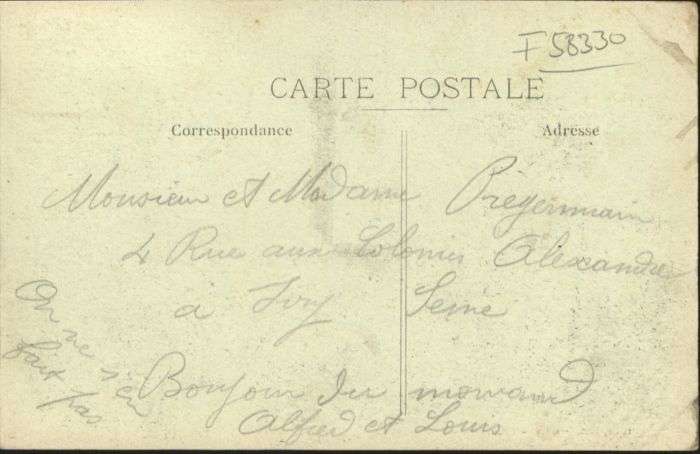 F 58330
CARTE POSTALE
Correspondance
Adresse
Monsieur et Madame Prégermain
4 Rue aux Colonies Alexandre
a Ivry Seine
Bonjour du morvand
Alfred et Louis
On ne s'en
fait pas